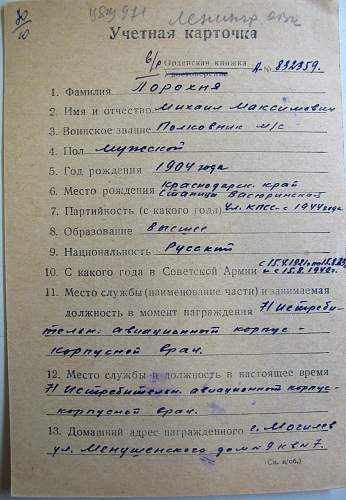 30/10
Ленингр. окр
Учетная карточка
б/р Орденская книжка
А-№ 832359.
1. Фамилия Порохня
2. Имя и отчество Михаил Максимович
3. Воинское звание Полковник м/с
4. Пол Мужской
5. Год рождения 1904 года
6. Место рождения Краснодарск. край
станица Васюринской
7. Партийность (с какого года) Чл. КПСС с 1944 года
8. Образование высшее
9. Национальность Русский
10. С какого года в Советской Армии с 15.8.1940г.
11. Место службы (наименование части) и занимаемая
должность в момент награждения 71 Истреби-
телен. авиационный корпус -
корпусной врач.
12. Место службы и должность в настоящее время
71 Истребителен. авиационный корпус-
корпусной врач.
13. Домашний адрес награжденного г. Могилев
ул. Менушенского дом № 9 кв № 7.
(См. н/об.)